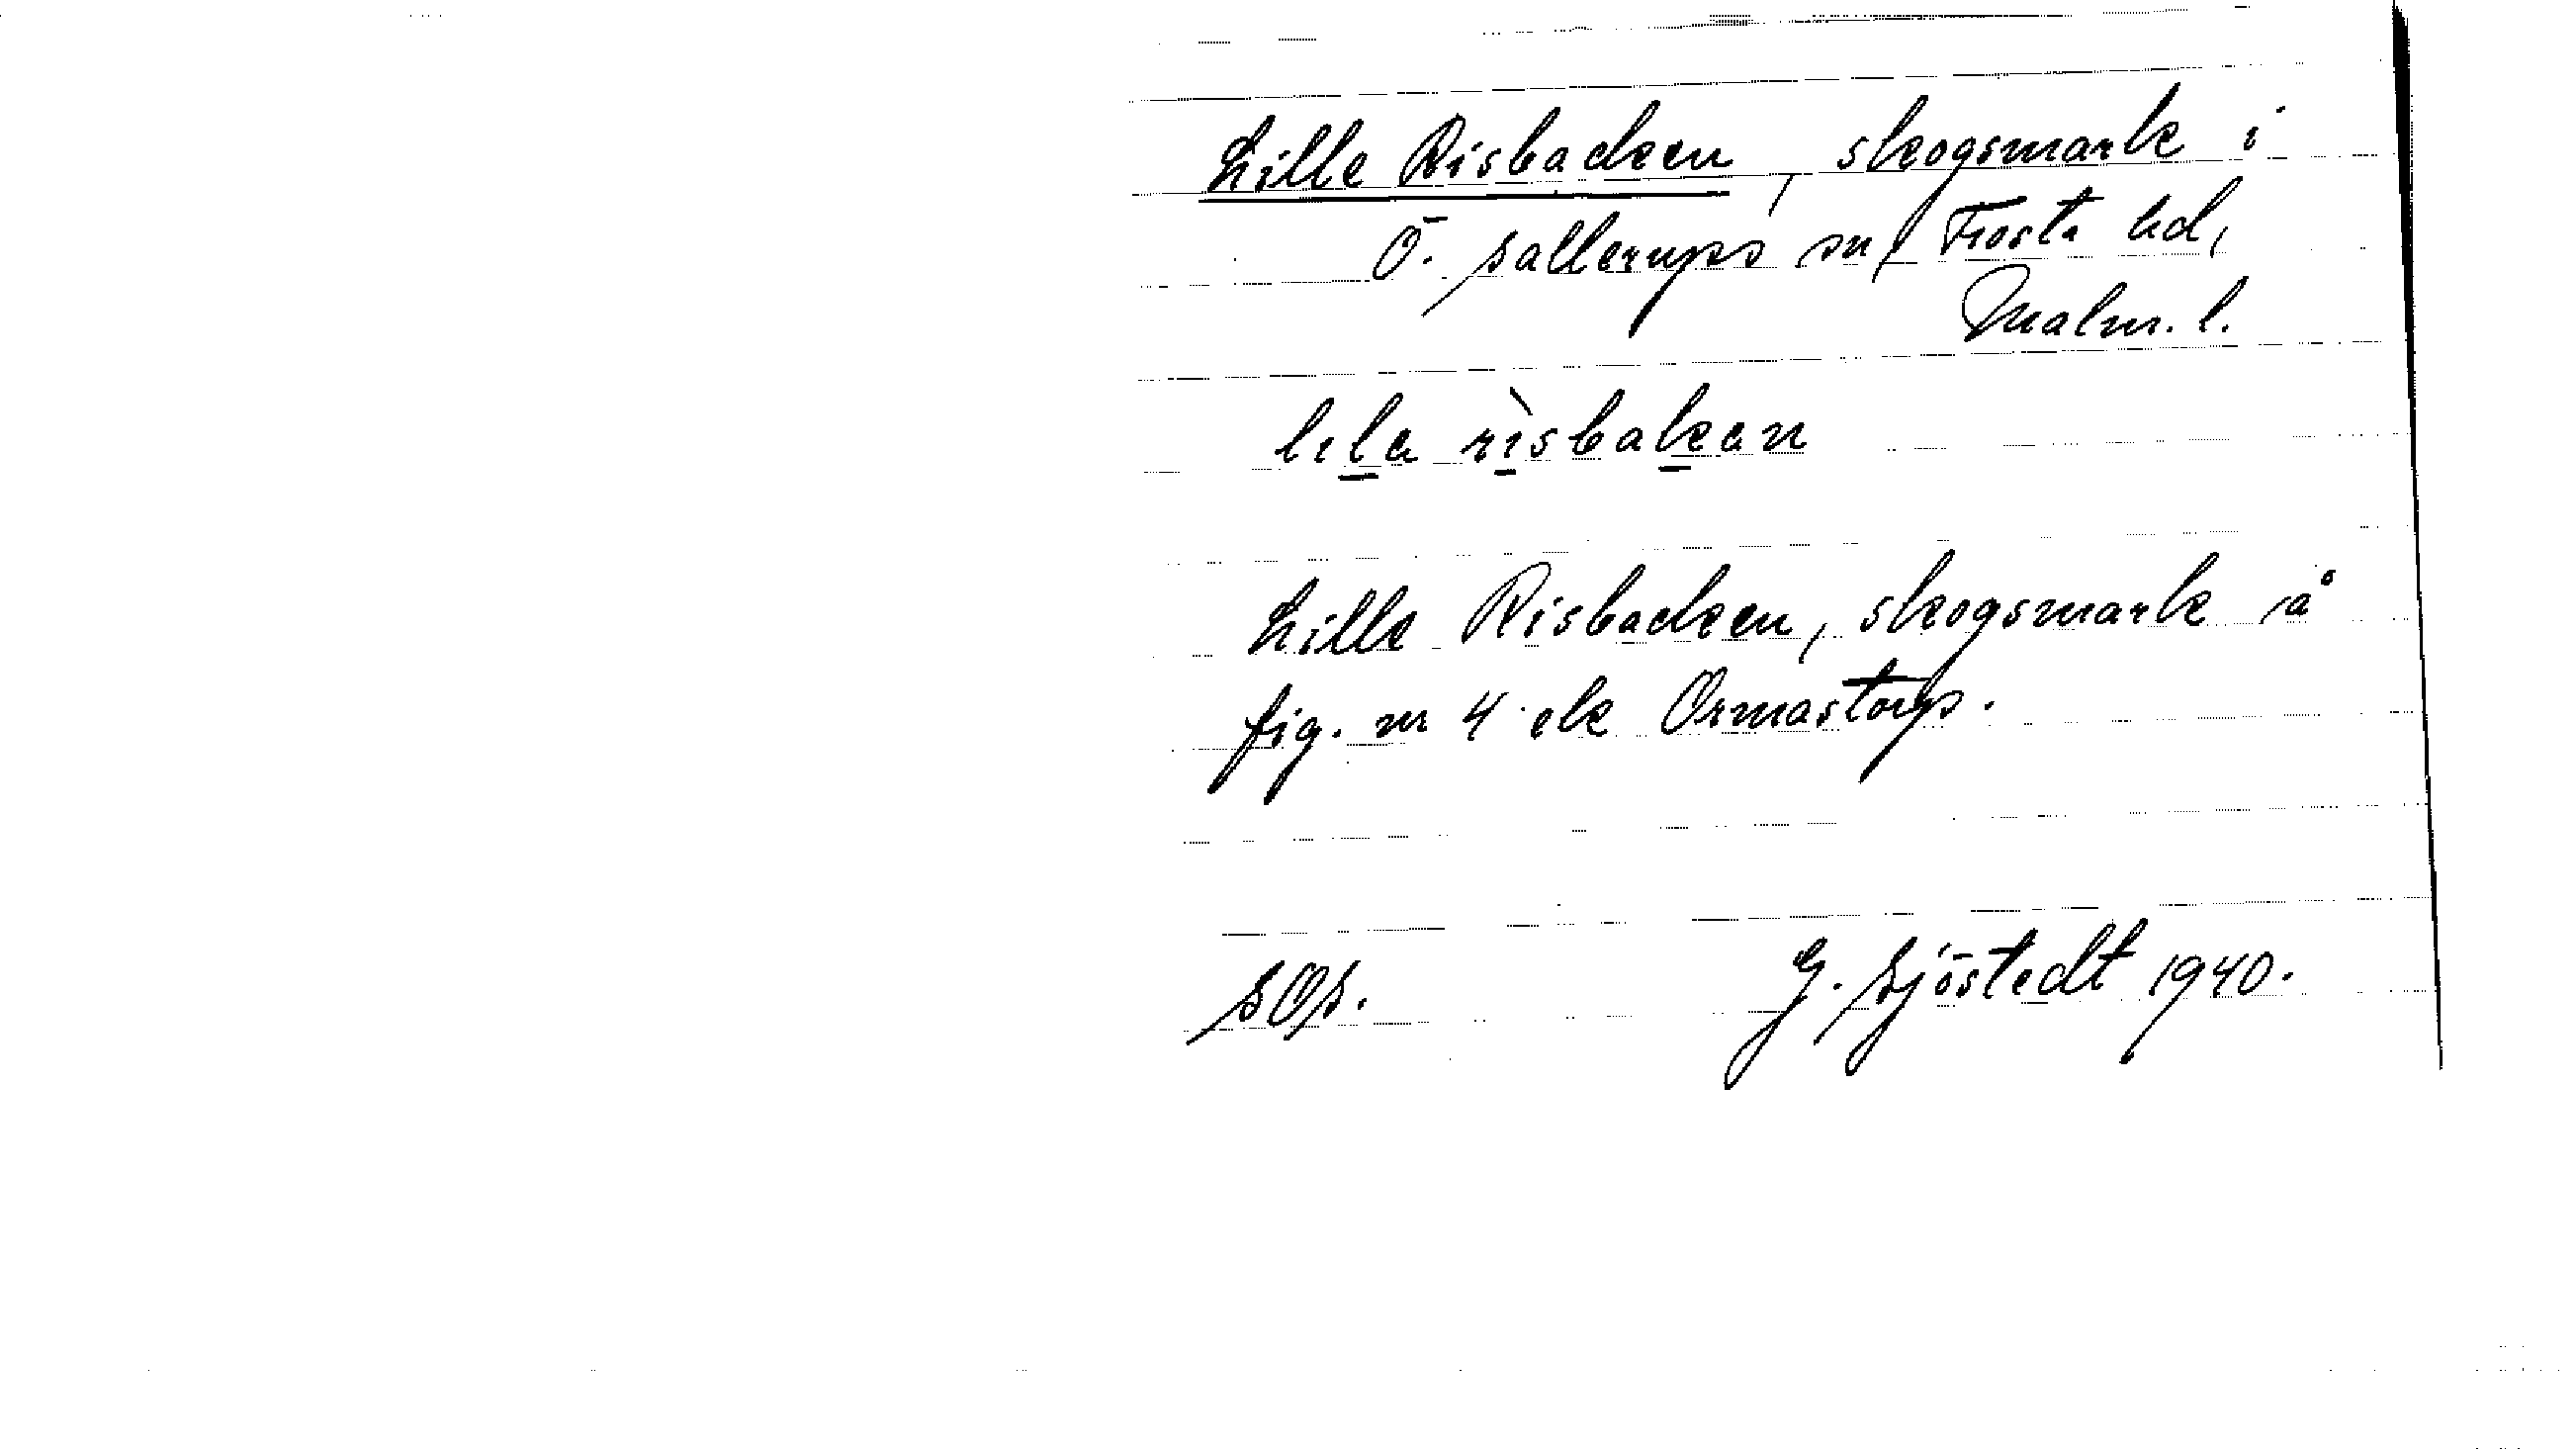 Lille Risbacken, skogsmark i
Ö. Sallerups sn, Frosta hd,
Malm. l.
lila rìsbakan
Lille Risbacken, skogsmark å
fig. nr 4 ek Ormastorp.
SOS.
G. Sjöstedt 1940.